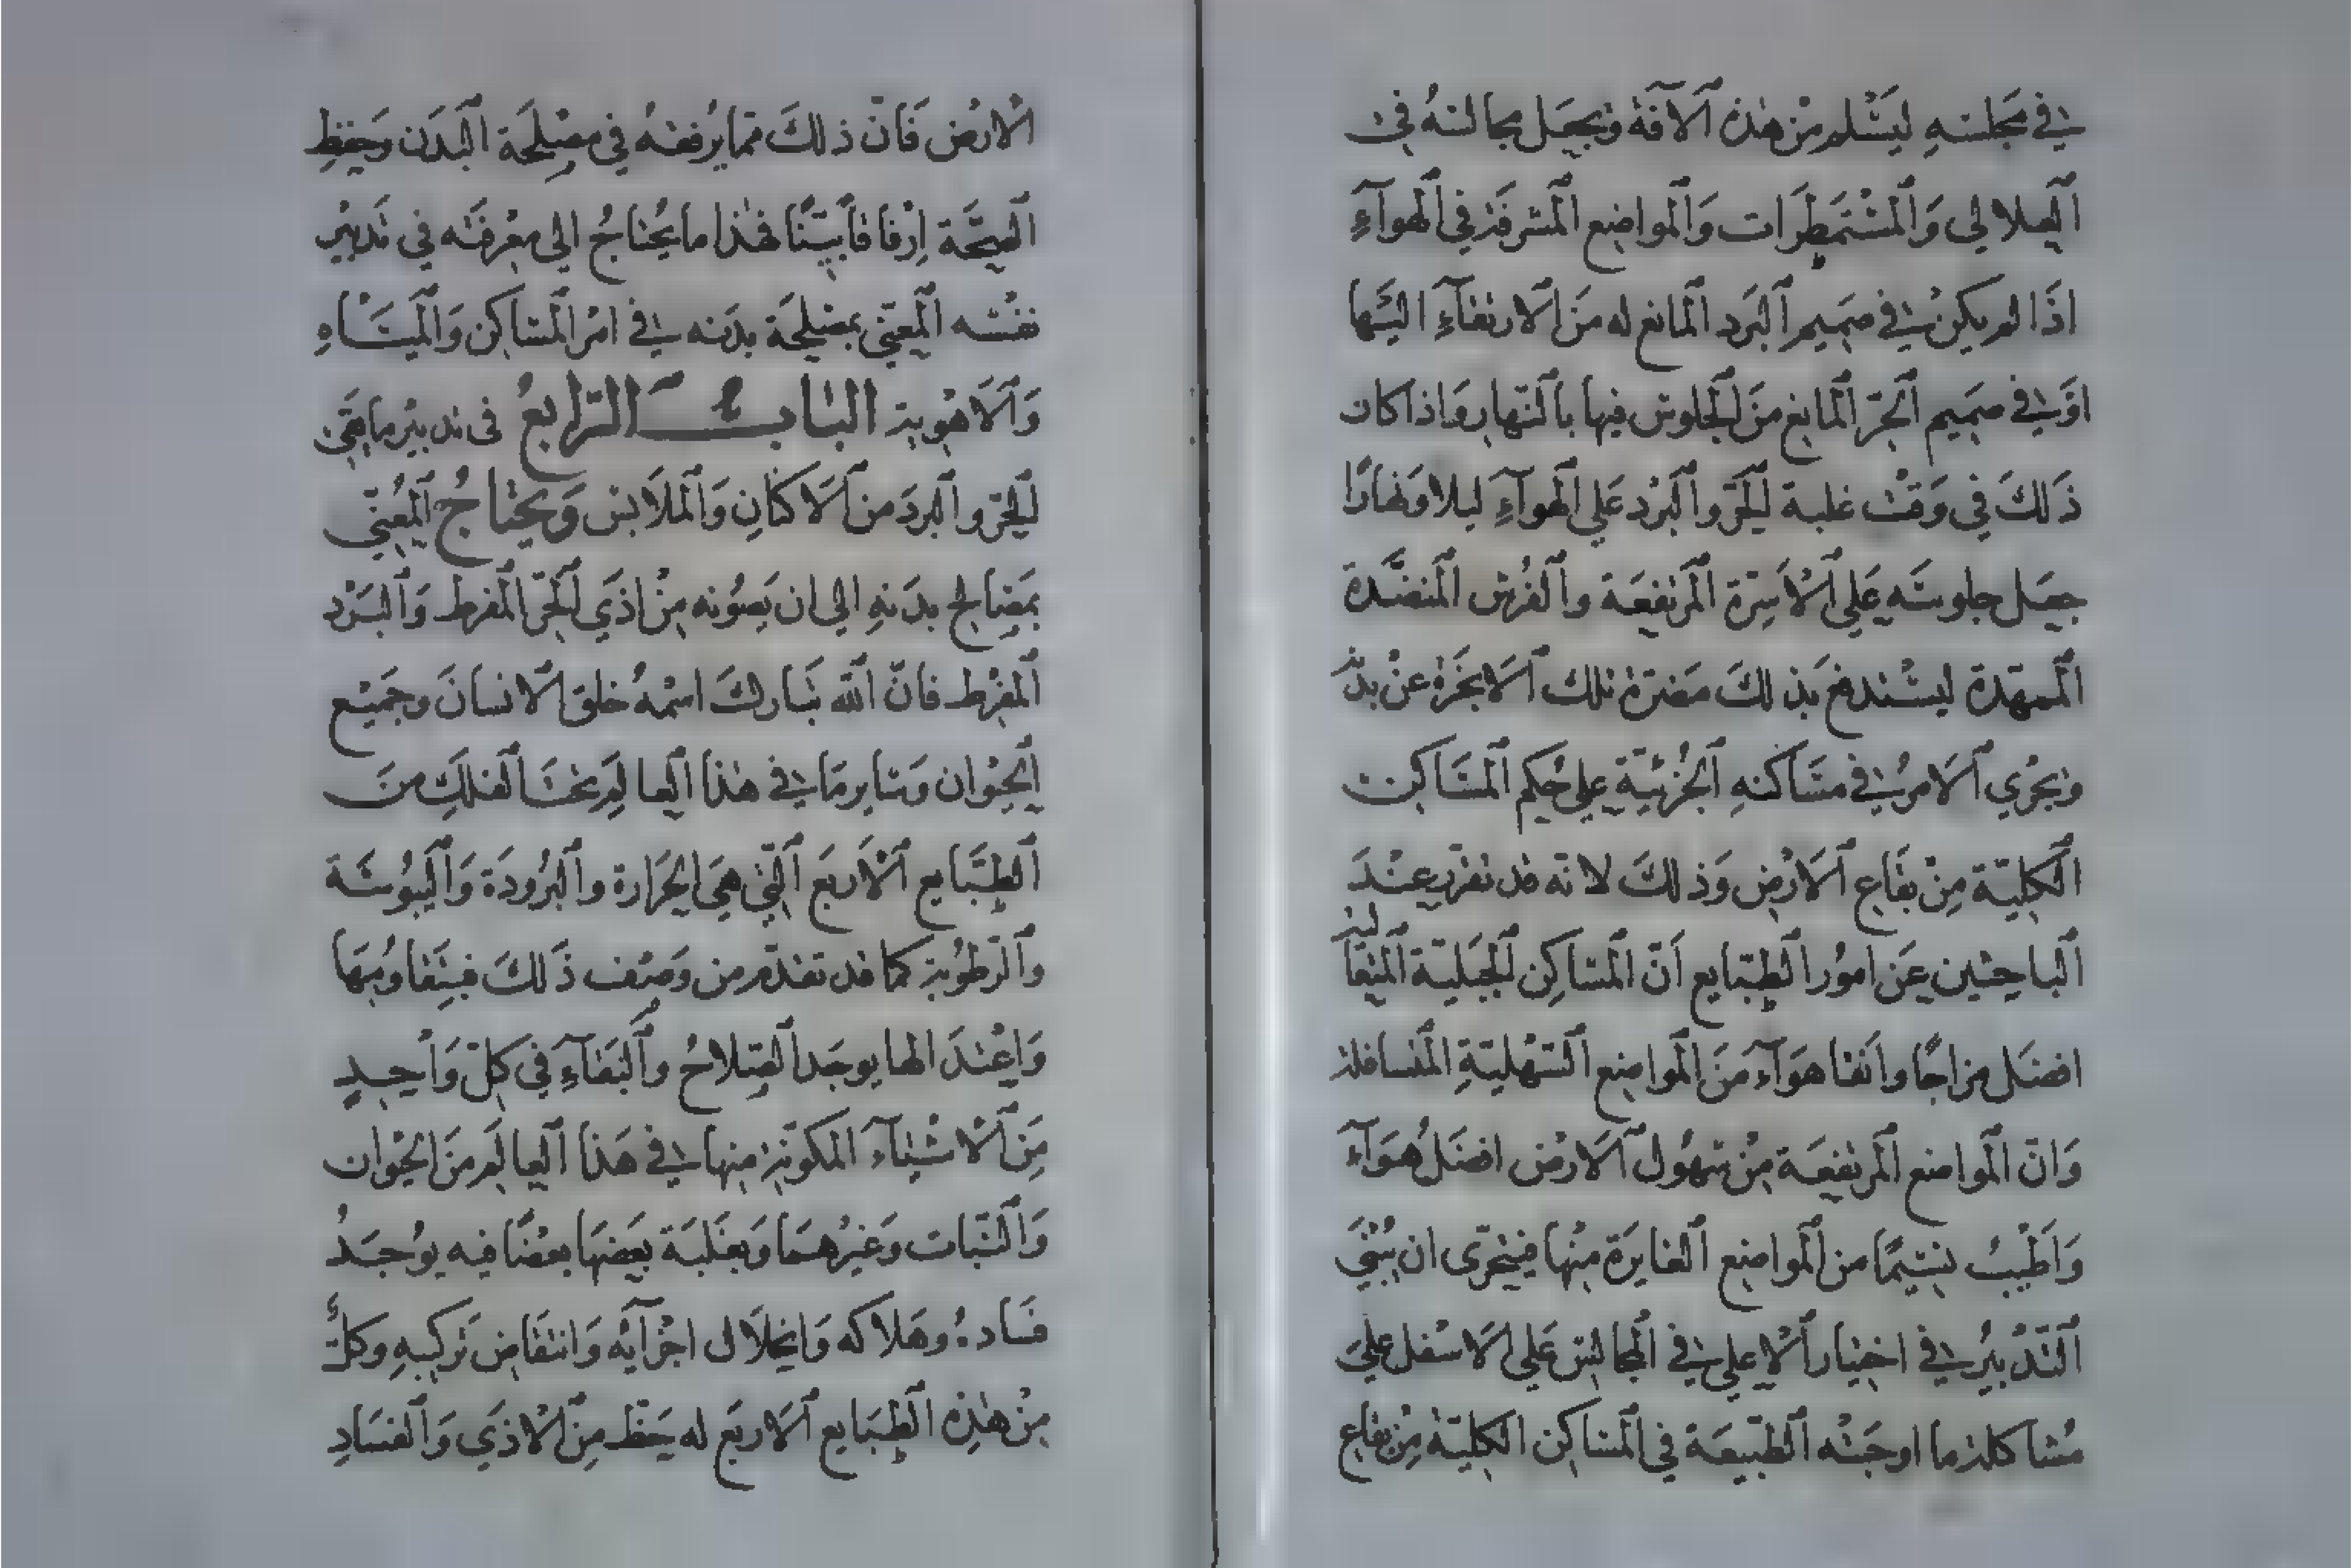 في مجلسه ليسلم من هذه الآفة ويجعل مجالسه في
العلالي والمستمطرات والمواضع المشرفة في الهوآء
اذا لم يكن في صميم البرد المانع له من الارتفآء اليها
او في صميم الحر المانع من الجلوس فيها بالنهار واذا كان
ذلك في وقت غلبة الحر والبرد علي الهوآء ليلا ونهارا
جعل جلوسه علي الاسرة المرتفعة والفرش المنضدة
الممهدة ليستدفع بذلك مضرة تلك الابخرة عن بدنه
ويجري الامر في مساكنه الجزئية علي حكم المساكن
الكلية من بقاع الارض وذلك لانه قد تقرر عند
الباحثين عن امور الطبايع أن المساكن الجبلية المتعالية
افضل مزاجا وانقا هوآء من المواضع السهلية المتسافلة
وان المواضع المرتفعة من سهول الارض افضل هوآء
واطيب نسيما من المواضع الغايرة منها فيتحرى ان يبنى
التدبير في اختيار الاعلي في المجالس علي الاسفل علي
مشاكلة ما اوجبته الطبيعة في المساكن الكلية من بقاع
الارض فان ذلك مما يرفقه في مصلحة البدن وحفظ
الصحة إرفاقا بينا فهذا ما يحتاج الى معرفته في تدبير
نفسه المعنى بمصلحة بدنه في امر المساكن والمياه
والاهوية الباب الرابع في تدبير ما يقى
الحر والبرد من الاكنان والملابس ويحتاج المعنى
بمصالح بدنه الي ان يصونه من اذي الحر المفرط والبرد
المفرط فان الله تبارك اسمه خلق الانسان وجميع
الحيوان وساير ما في هذا العالم تحت الفلك من
الطبايع الاربع التي هي الحرارة والبرودة واليبوسة
والرطوبة كما قد تقدم من وصف ذلك فبتقاومها
واعتدالها يوجد الصلاح والبقآء في كل واحد
من الاشيآء المكونة منها في هذا العالم من الحيوان
والنبات وغيرهما وبغلبة بعضها بعضا فيه يوجد
فساده وهلاكه وانحلال اجزآيه وانتقاض تركيبه وكل
من هذه الطبايع الاربع له حظ من الاذي والفساد